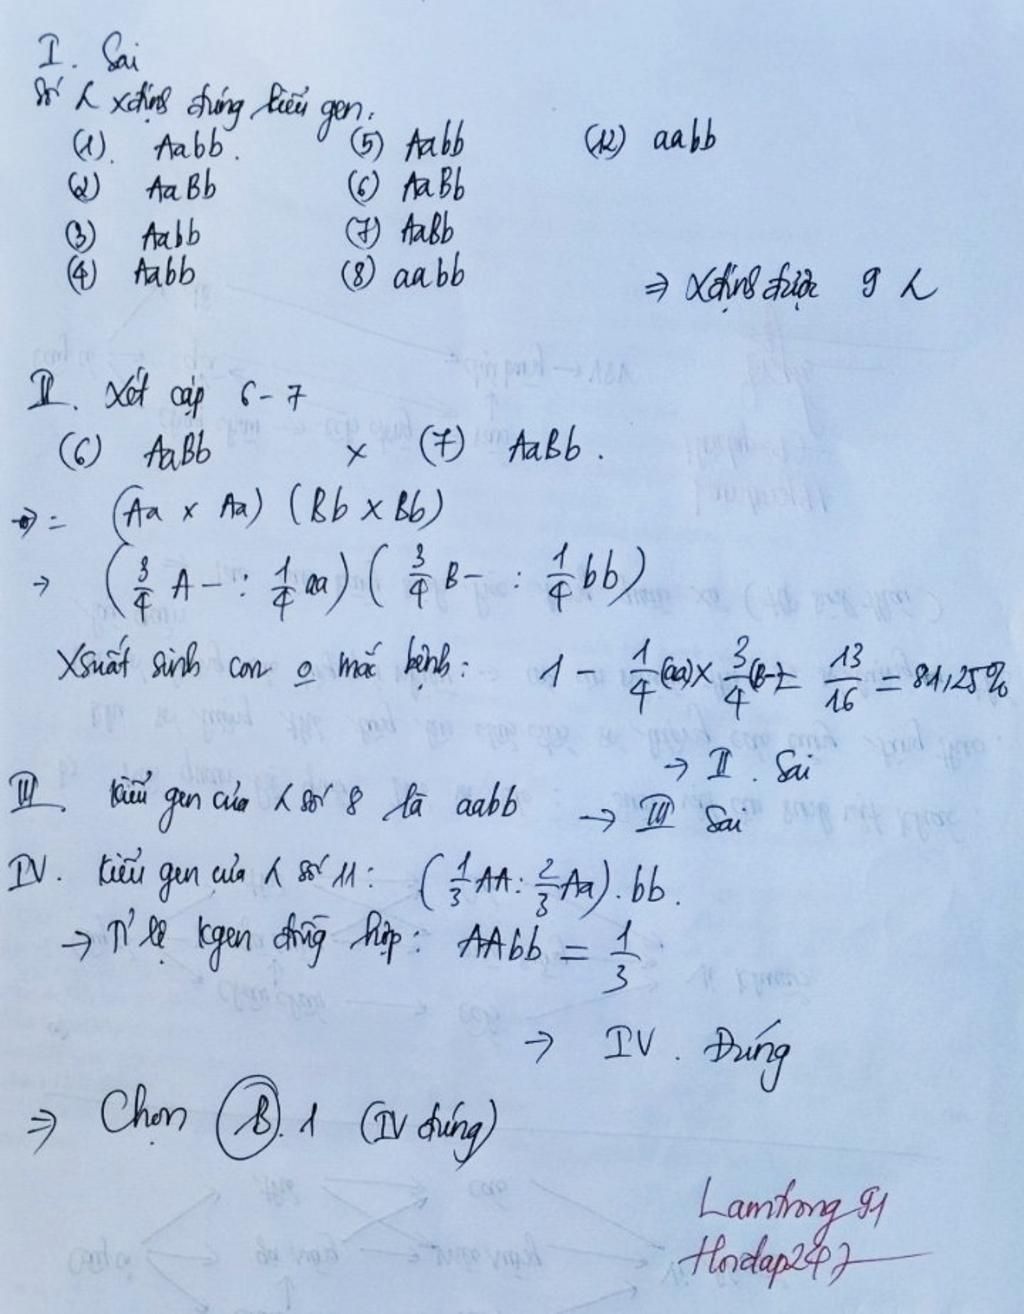 I. Sai
Số λ xđịnh đúng kiểu gen:
(1). Aabb. (5) Aabb (12) aabb
(2) AaBb (6) AaBb
(3) Aabb (7) AaBb
(4) Aabb (8) aabb
⇒ xđịnh được 9 λ
II. Xét cặp 6-7
(6) AaBb × (7) AaBb.
⇒ = (Aa × Aa) (Bb × Bb)
→ (3/4 A- : 1/4 aa) (3/4 B- : 1/4 bb)
Xsuất sinh con o mắc bệnh: 1 - 1/4 (aa) × 3/4 (B-) = 13/16 = 81,25%
→ II. Sai
III. Kiểu gen của λ số 8 là aabb → III Sai
IV. Kiểu gen của λ số 11: (1/3 AA : 2/3 Aa).bb.
→ Tỉ lệ kgen đồng hợp: AAbb = 1/3
→ IV. Đúng
⇒ Chọn B. 1 (IV đúng)
Lamtrong91
Hoidap247